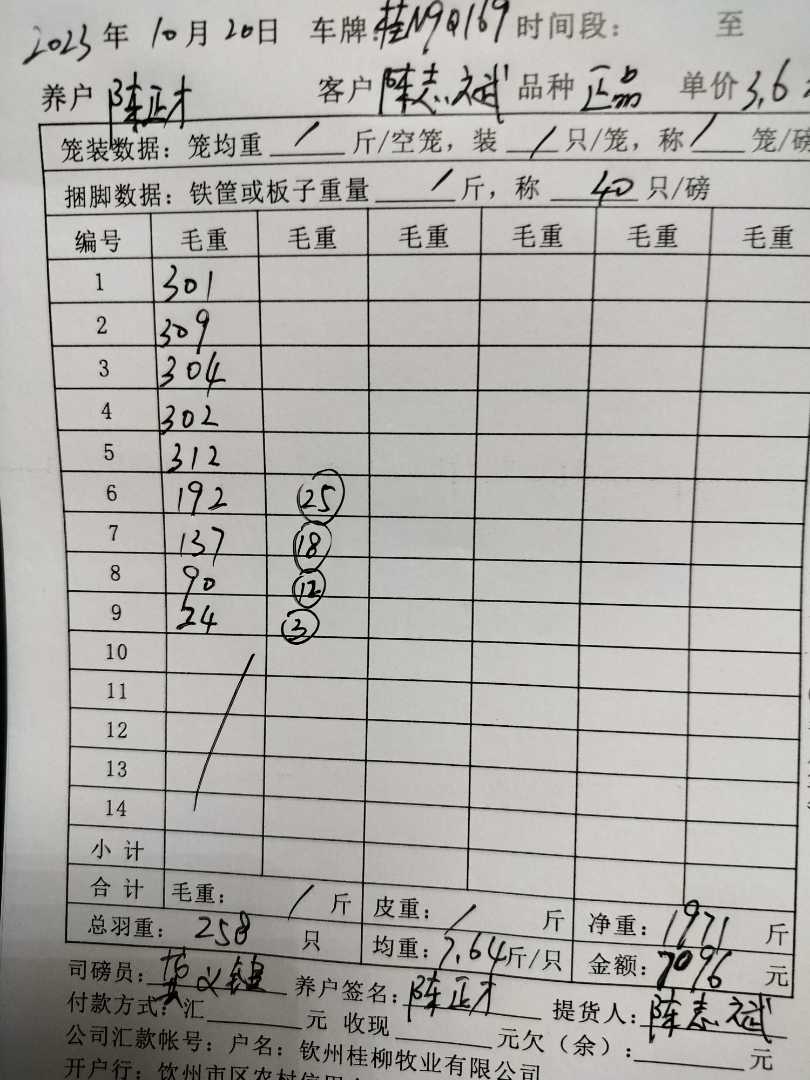 2023 年 10 月 20 日 车牌:桂N9Q169 时间段: 至
养户 陈正才 客户 陈志斌 品种 正品 单价 3.6
笼装数据: 笼均重 / 斤/空笼, 装 / 只/笼, 称 / 笼/磅
捆脚数据: 铁筐或板子重量 / 斤, 称 40 只/磅
编号 毛重 毛重 毛重 毛重 毛重 毛重
1 301
2 309
3 304
4 302
5 312
6 192 25
7 137 18
8 90 12
9 24 3
10
11
12
13
14
小 计
合 计 毛重: / 斤 皮重: / 斤 净重: 1971 斤
总羽重: 258 只 均重: 7.64 斤/只 金额: 7096 元
司磅员: 养户签名: 陈正才 提货人: 陈志斌
付款方式: 汇 元 收现 元欠(余): 元
公司汇款帐号: 户名: 钦州桂柳牧业有限公司
开户行: 钦州市区农村信用